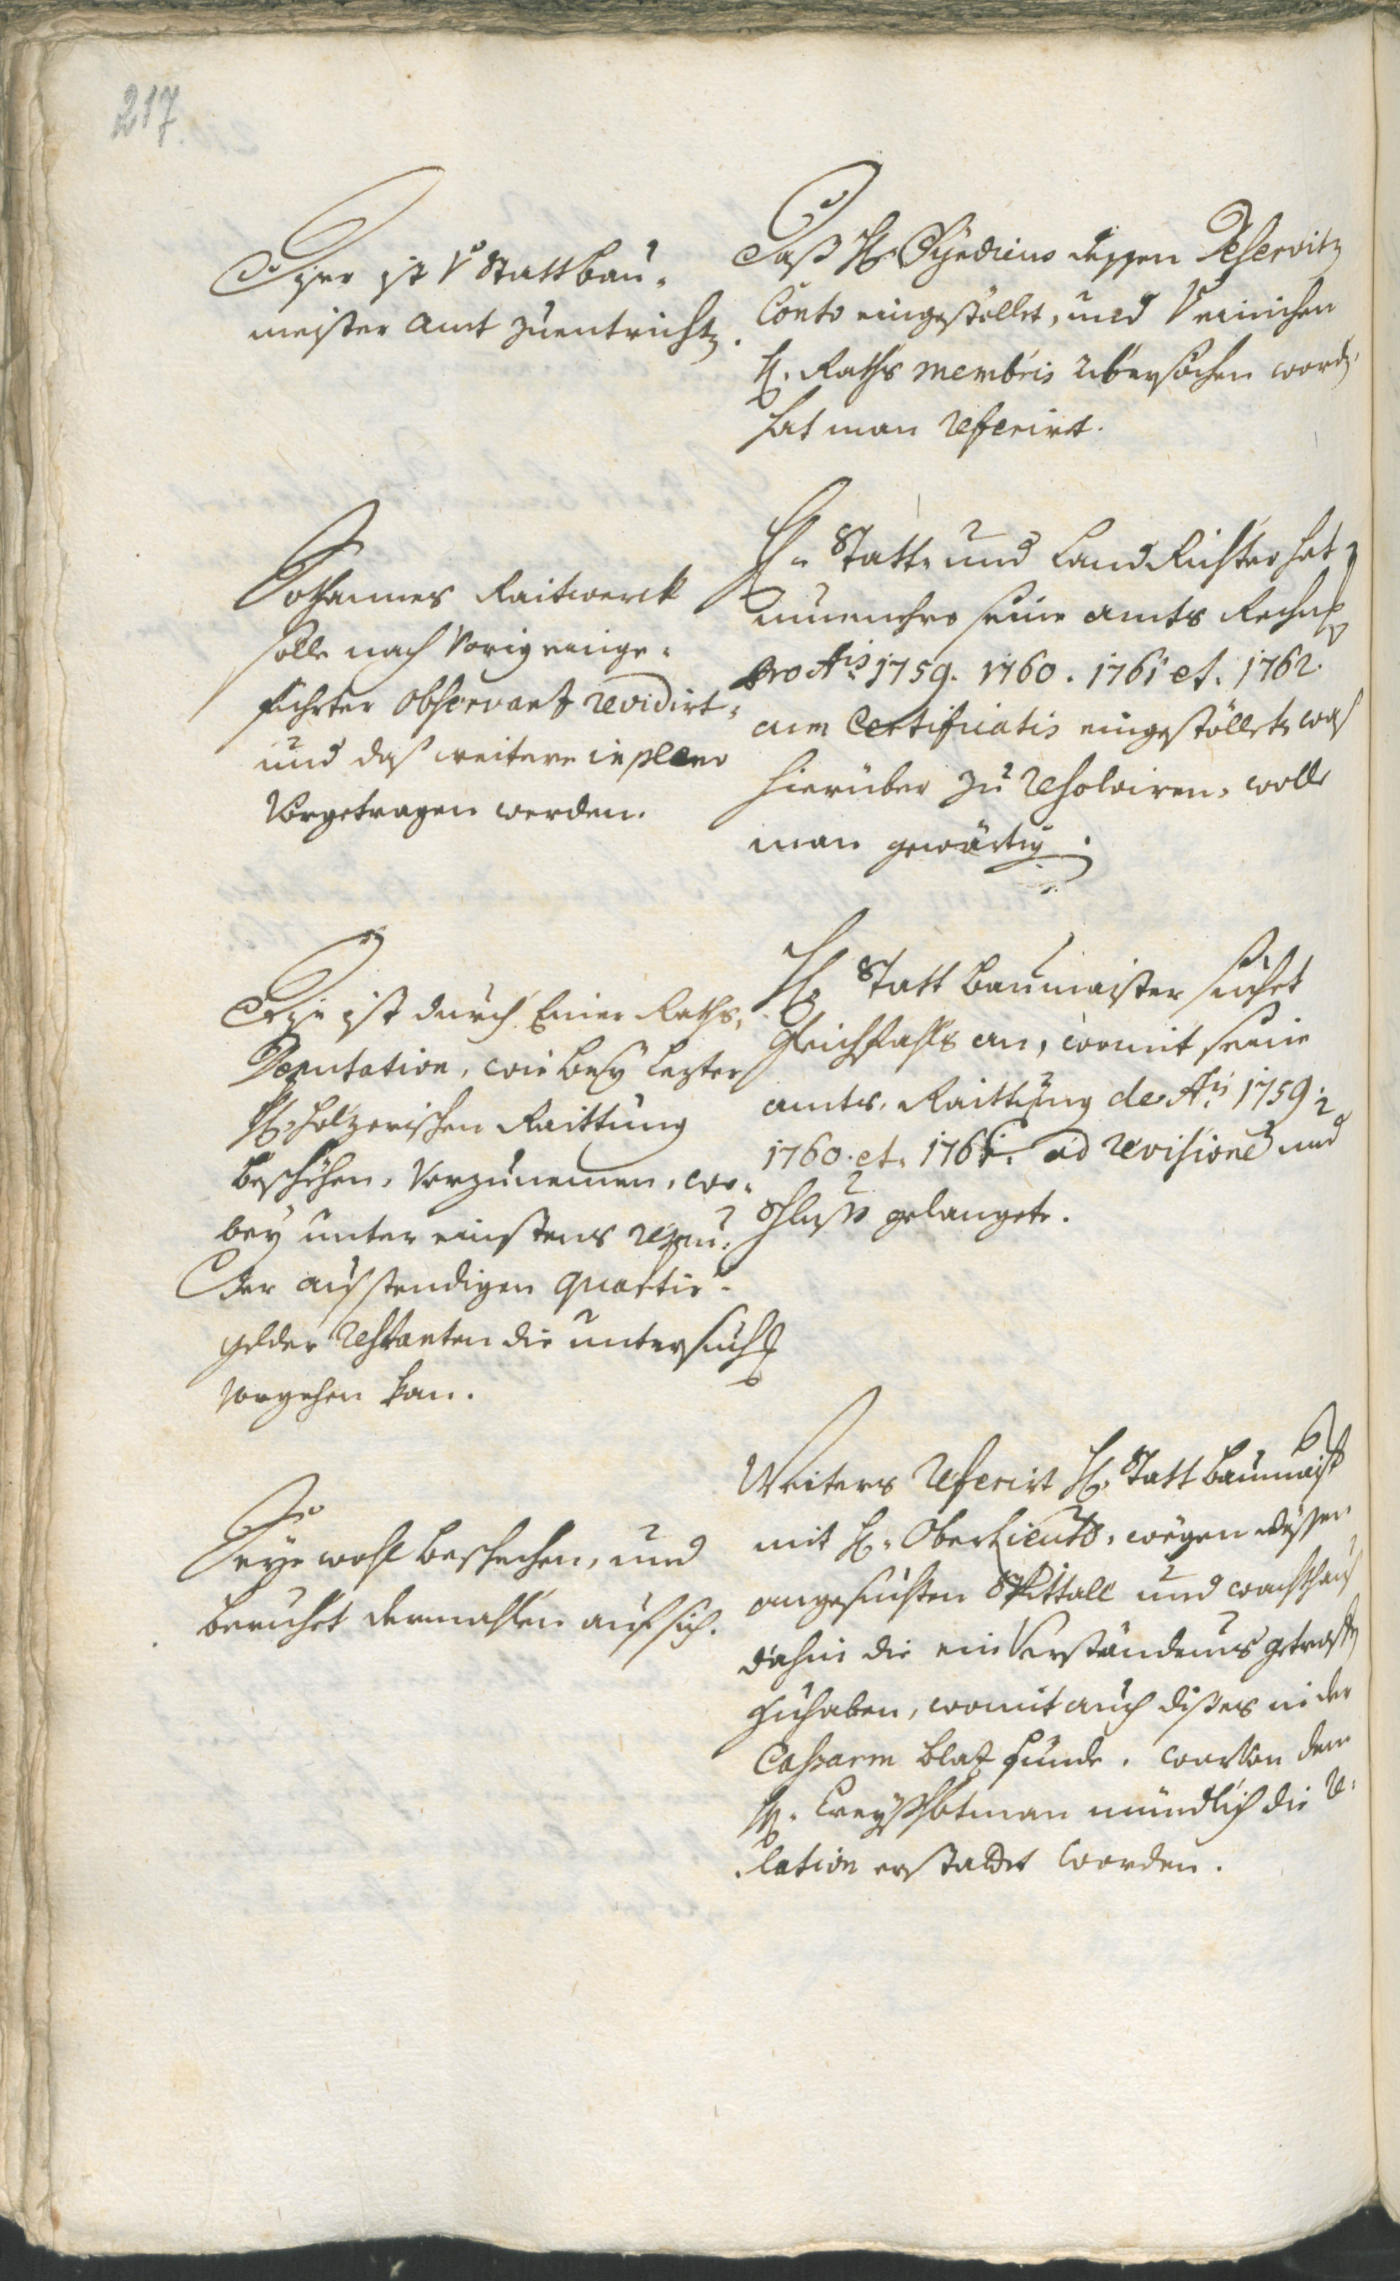 217.
Diser ist P Stattbau-
meister Amt zuentrichtn.
Daß H. Syndicus dessen Deservitn
Conto eingestöllet, und P einichen
H. Raths membris übersöchen wordn,
hat man Referirt.
Sothannes Raitwerck
solle nach Vorig einge-
fiehrter observanz revidirt
und das weitere in pleno
Vorgetragen werden.
H. Statt- und LandRichter hat
nunmehro seine amts Rechng
pro Ais 1759. 1760. 1761 et. 1762.
cum Certificatis eingestöllet, was
hierüber zu Resolviren, wolle
man gewärtig.
Dise ist durch Einer Raths-
Deputation, wie bey lezter
H. Holzerischen Raittung
beschehen, Vorzunemen, wo-
bey unter einstens
der ausstendigen quartir-
gelder Restanten die untersuchg
Vorgehen kan.
H. Statt Baumaister suchet
gleichfahls an, womit seine
amts. Raittung de Ais 1759.
1760. et. 1761. ad revisione und
Schluss gelangete.
Seye wohl beschechen, und
beruhet dermahlen auf sich.
Weiters Referirt H. Statt Baumaistr
mit H. Oberlieuts. wegen dessen
angesuchten Spittall und wachthaus
dahin die ein Verständnus getroffn
zuhaben, womit auch dises in der
Casarm blaz funde. warvon dem
H. Creyshbtman mündlich die Re-
lation erstattet worden.